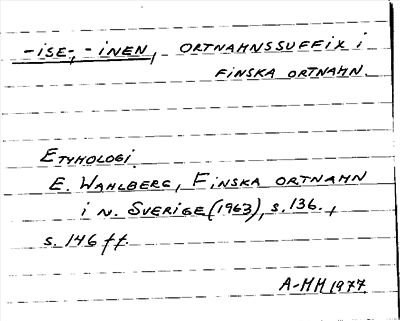 -ise-, -inen, ORTNAMNSSUFFIX i
FINSKA ORTNAMN.
ETYMOLOGI.
E. WAHLBERG, FINSKA ORTNAMN
i N. SVERIGE (1963), s. 136.,
s. 146 ff.
A-MH 1977